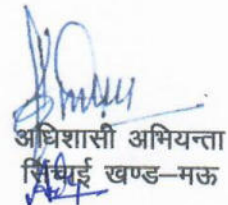 अधिशासी अभियन्ता
सिंचाई खण्ड–मऊ